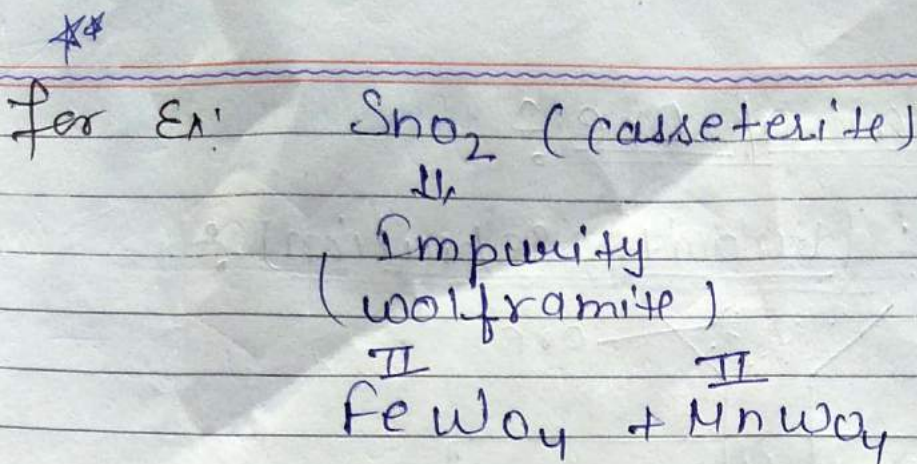 for Ex:    SnO₂ (Casseterite)
⇓
Impurity
(wolframite)
II    II
FeWO₄ + MnWO₄